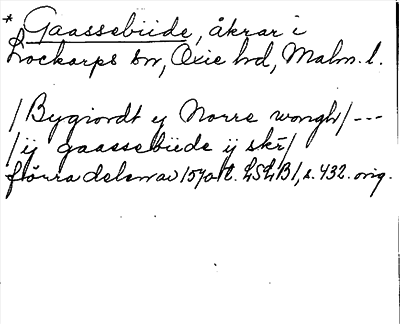 * Gaassebüde, åkrar i
Lockarps sn, Oxie hd, Malm. l.
/Bygiordt y Norre wongh/ ---
/ij gaassebüde ij skr̄/
förra delen av 1570 t. LSLB1, s. 432. orig.